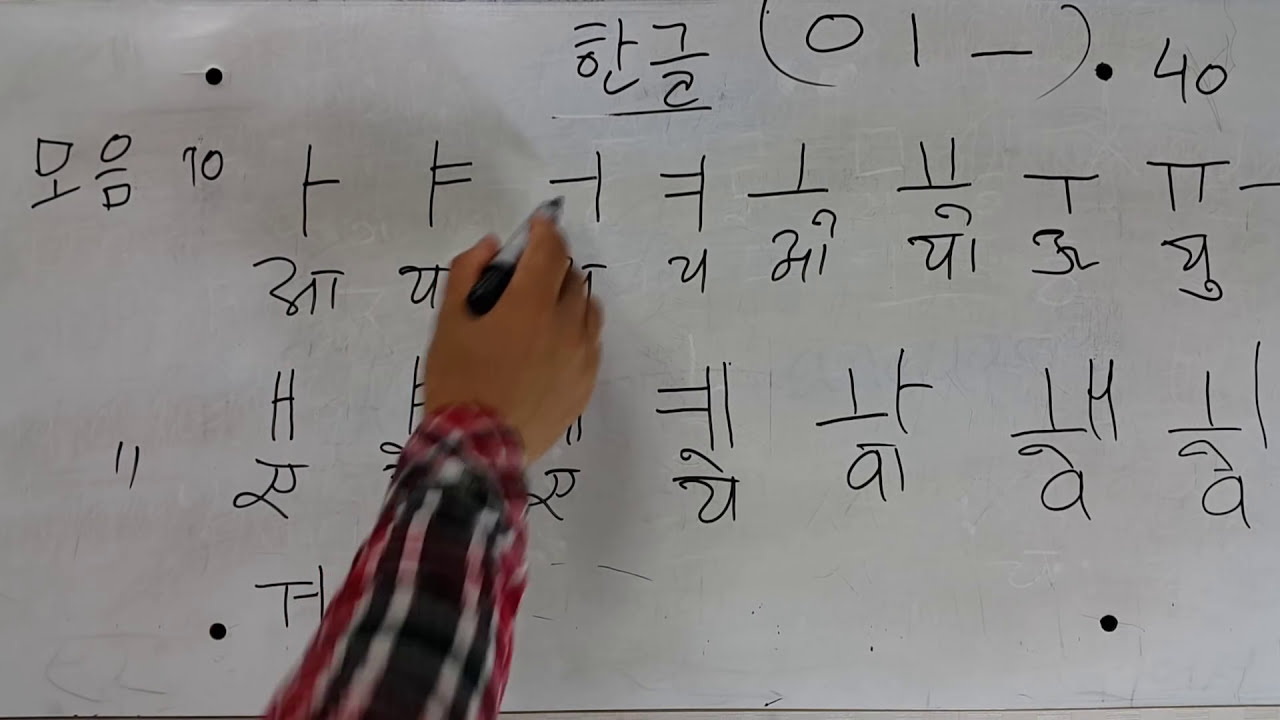 한글 (ㅇ ㅣ ㅡ) . 40
모음 10 ㅏ ㅑ ㅓ ㅕ ㅗ ㅛ ㅜ ㅠ ㅡ
आ य य ओ यो ऊ यु
" ㅐ ㅖ ㅘ ㅙ ㅚ
ए ए ये वा वे वे
ㅝ